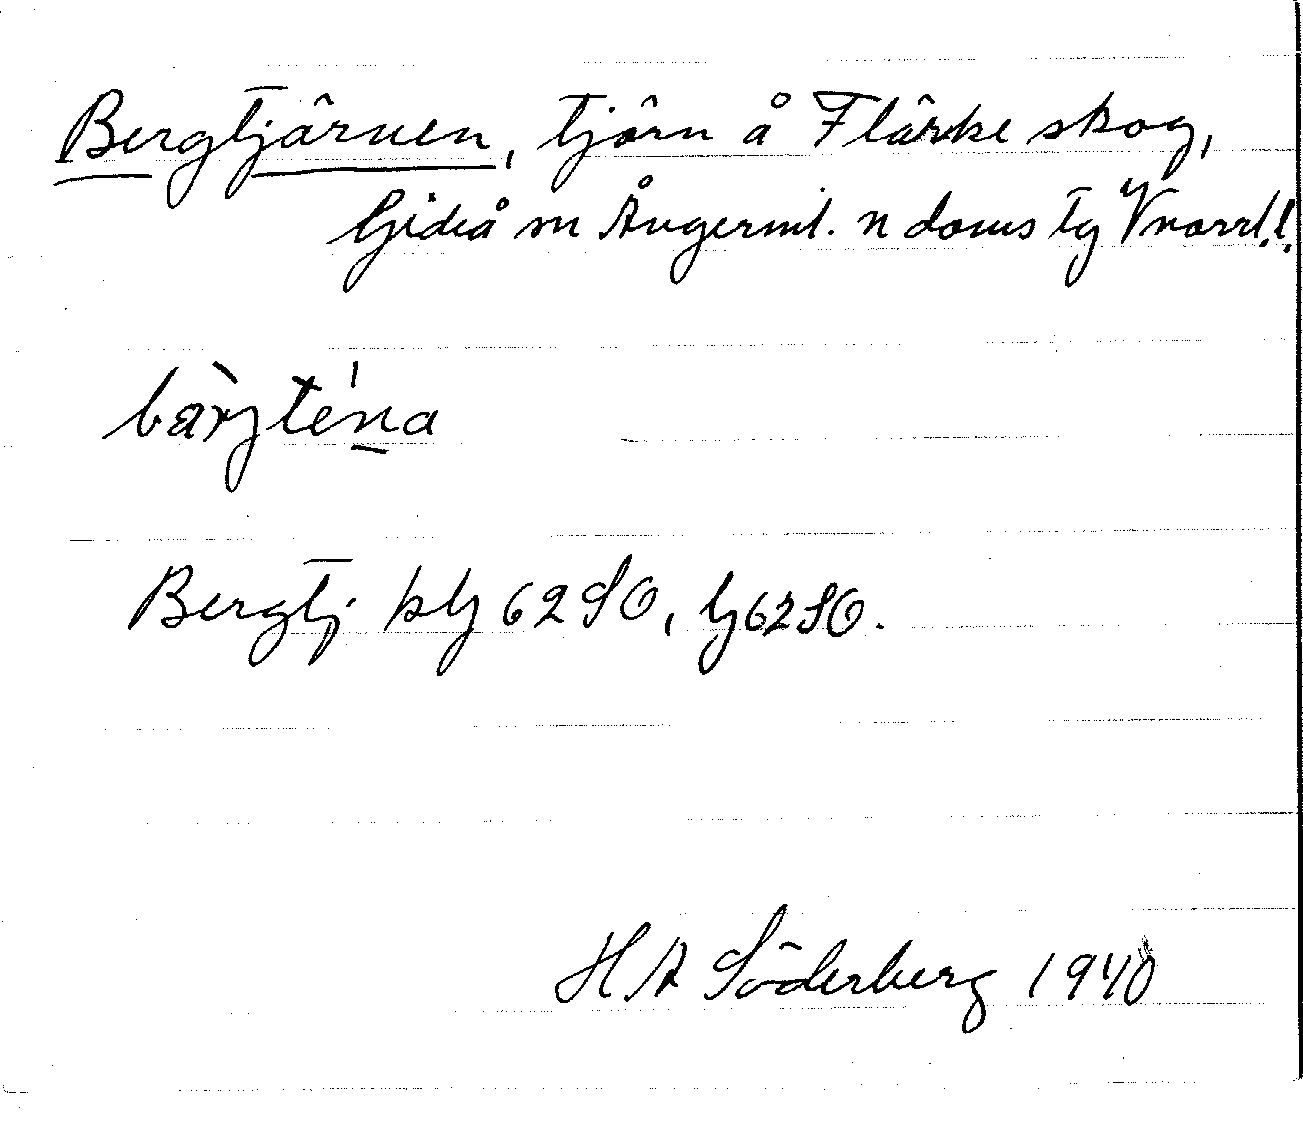 Bergtjärnen, tjärn å Flärke skog,
Gideå sn Ångerml. n doms tg Vnorrl.!
bàrgténa
Bergtj blg 62 SO, G 62 SO.
H A Söderberg 1940